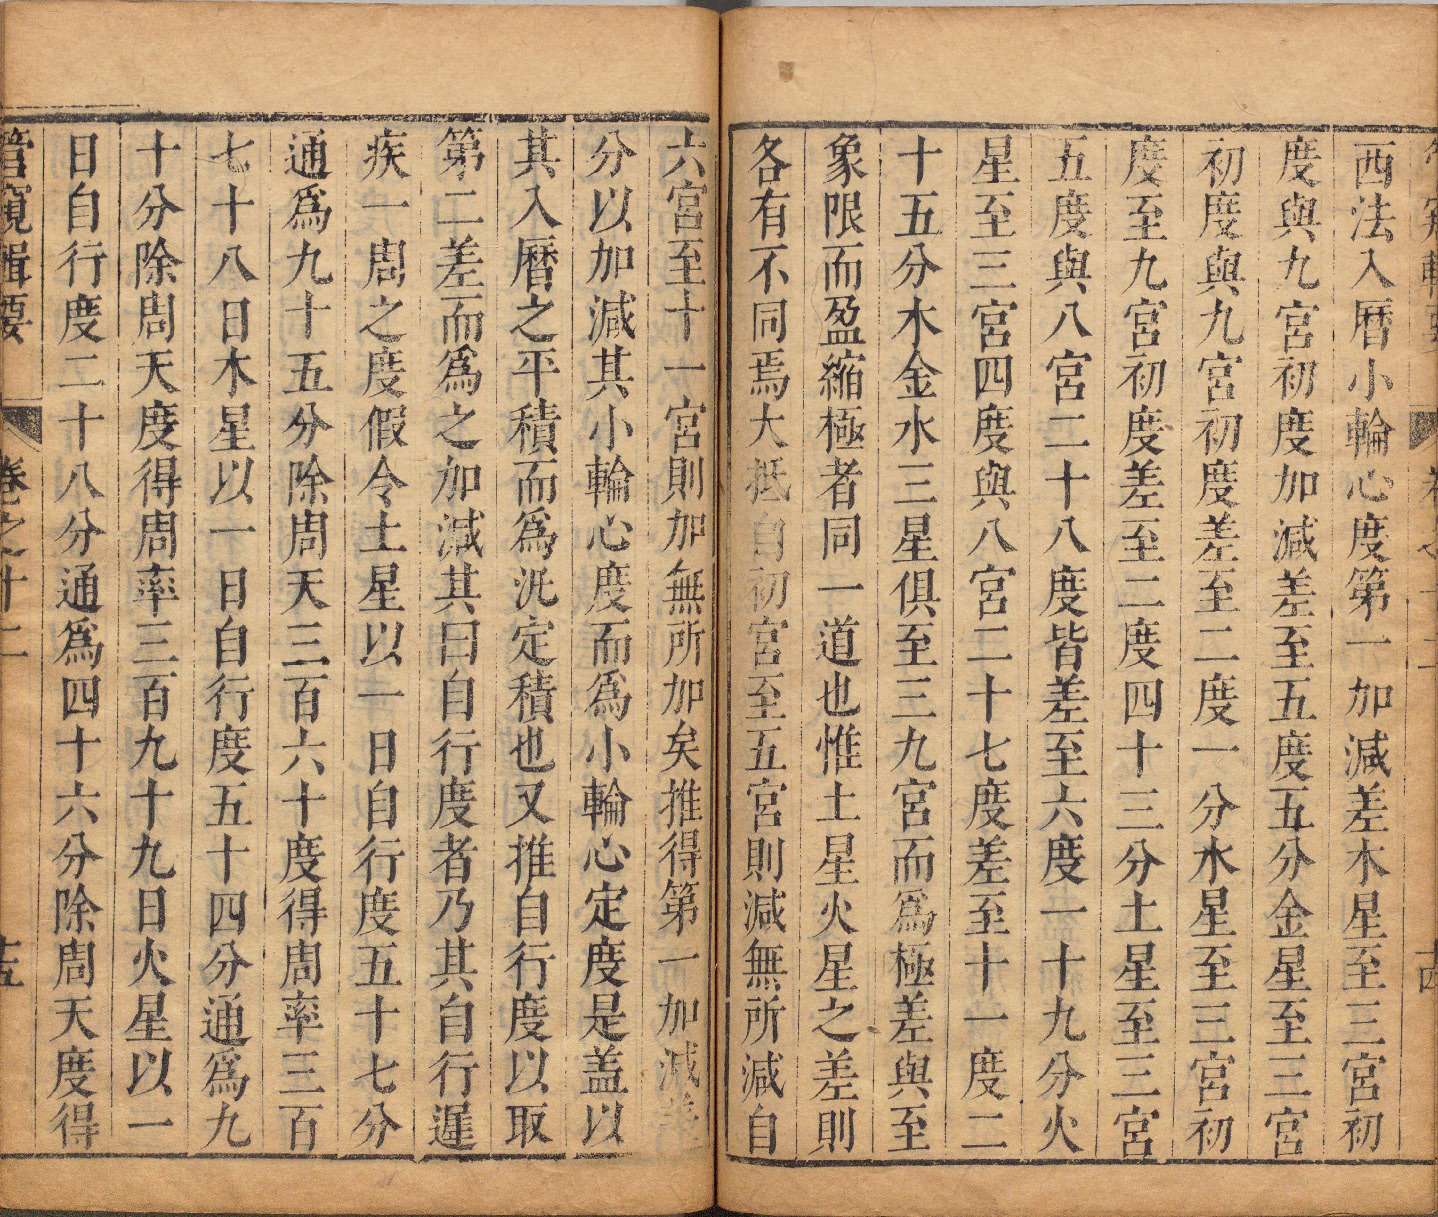 西法入曆小輪心度第一加減差木星至三宮初
度與九宮初度加減差至五度五分金星至三宮
初度與九宮初度差至二度一分水星至三宮初
度至九宮初度差至二度四十三分土星至三宮
五度與八宮二十八度皆差至六度一十九分火
星至三宮四度與八宮二十七度差至十一度二
十五分木金水三星俱至三九宮而爲極差與至
象限而盈縮極者同一道也惟土星火星之差則
各有不同焉大抵自初宮至五宮則減無所減自
六宮至十一宮則加無所加矣推得第一加減差
分以加減其小輪心度而爲小輪心定度是盖以
其入曆之平積而爲汎定積也又推自行度以取
第二差而爲之加減其曰自行度者乃其自行遲
疾一周之度假令土星以一日自行度五十七分
通爲九十五分除周天三百六十度得周率三百
七十八日木星以一日自行度五十四分通爲九
十分除周天度得周率三百九十九日火星以一
日自行度二十八分通爲四十六分除周天度得
管窺輯要
卷之十二
十五